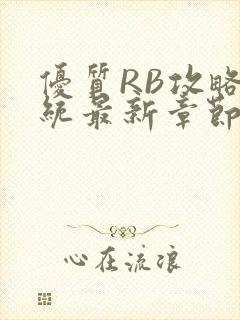 優質RB攻略
統最新章節
心在流浪